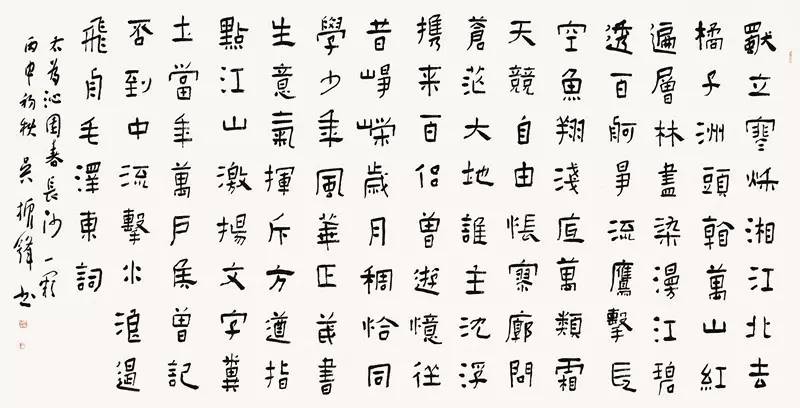 獨立寒秌湘江北去
橘子洲頭看萬山紅
遍層林盡染漫江碧
透百舸爭流鷹擊長
空魚翔淺底萬類霜
天競自由悵寥廓問
蒼茫大地誰主沈浮
携来百侣曾遊憶往
昔崢嶸歲月稠恰同
學少年風華正茂書
生意氣揮斥方遒指
點江山激揚文字糞
土當年萬戶侯曾記
否到中流擊水浪遏
飛舟毛澤東詞
右為沁園春長沙一闋
丙申初秋吳振鋒书